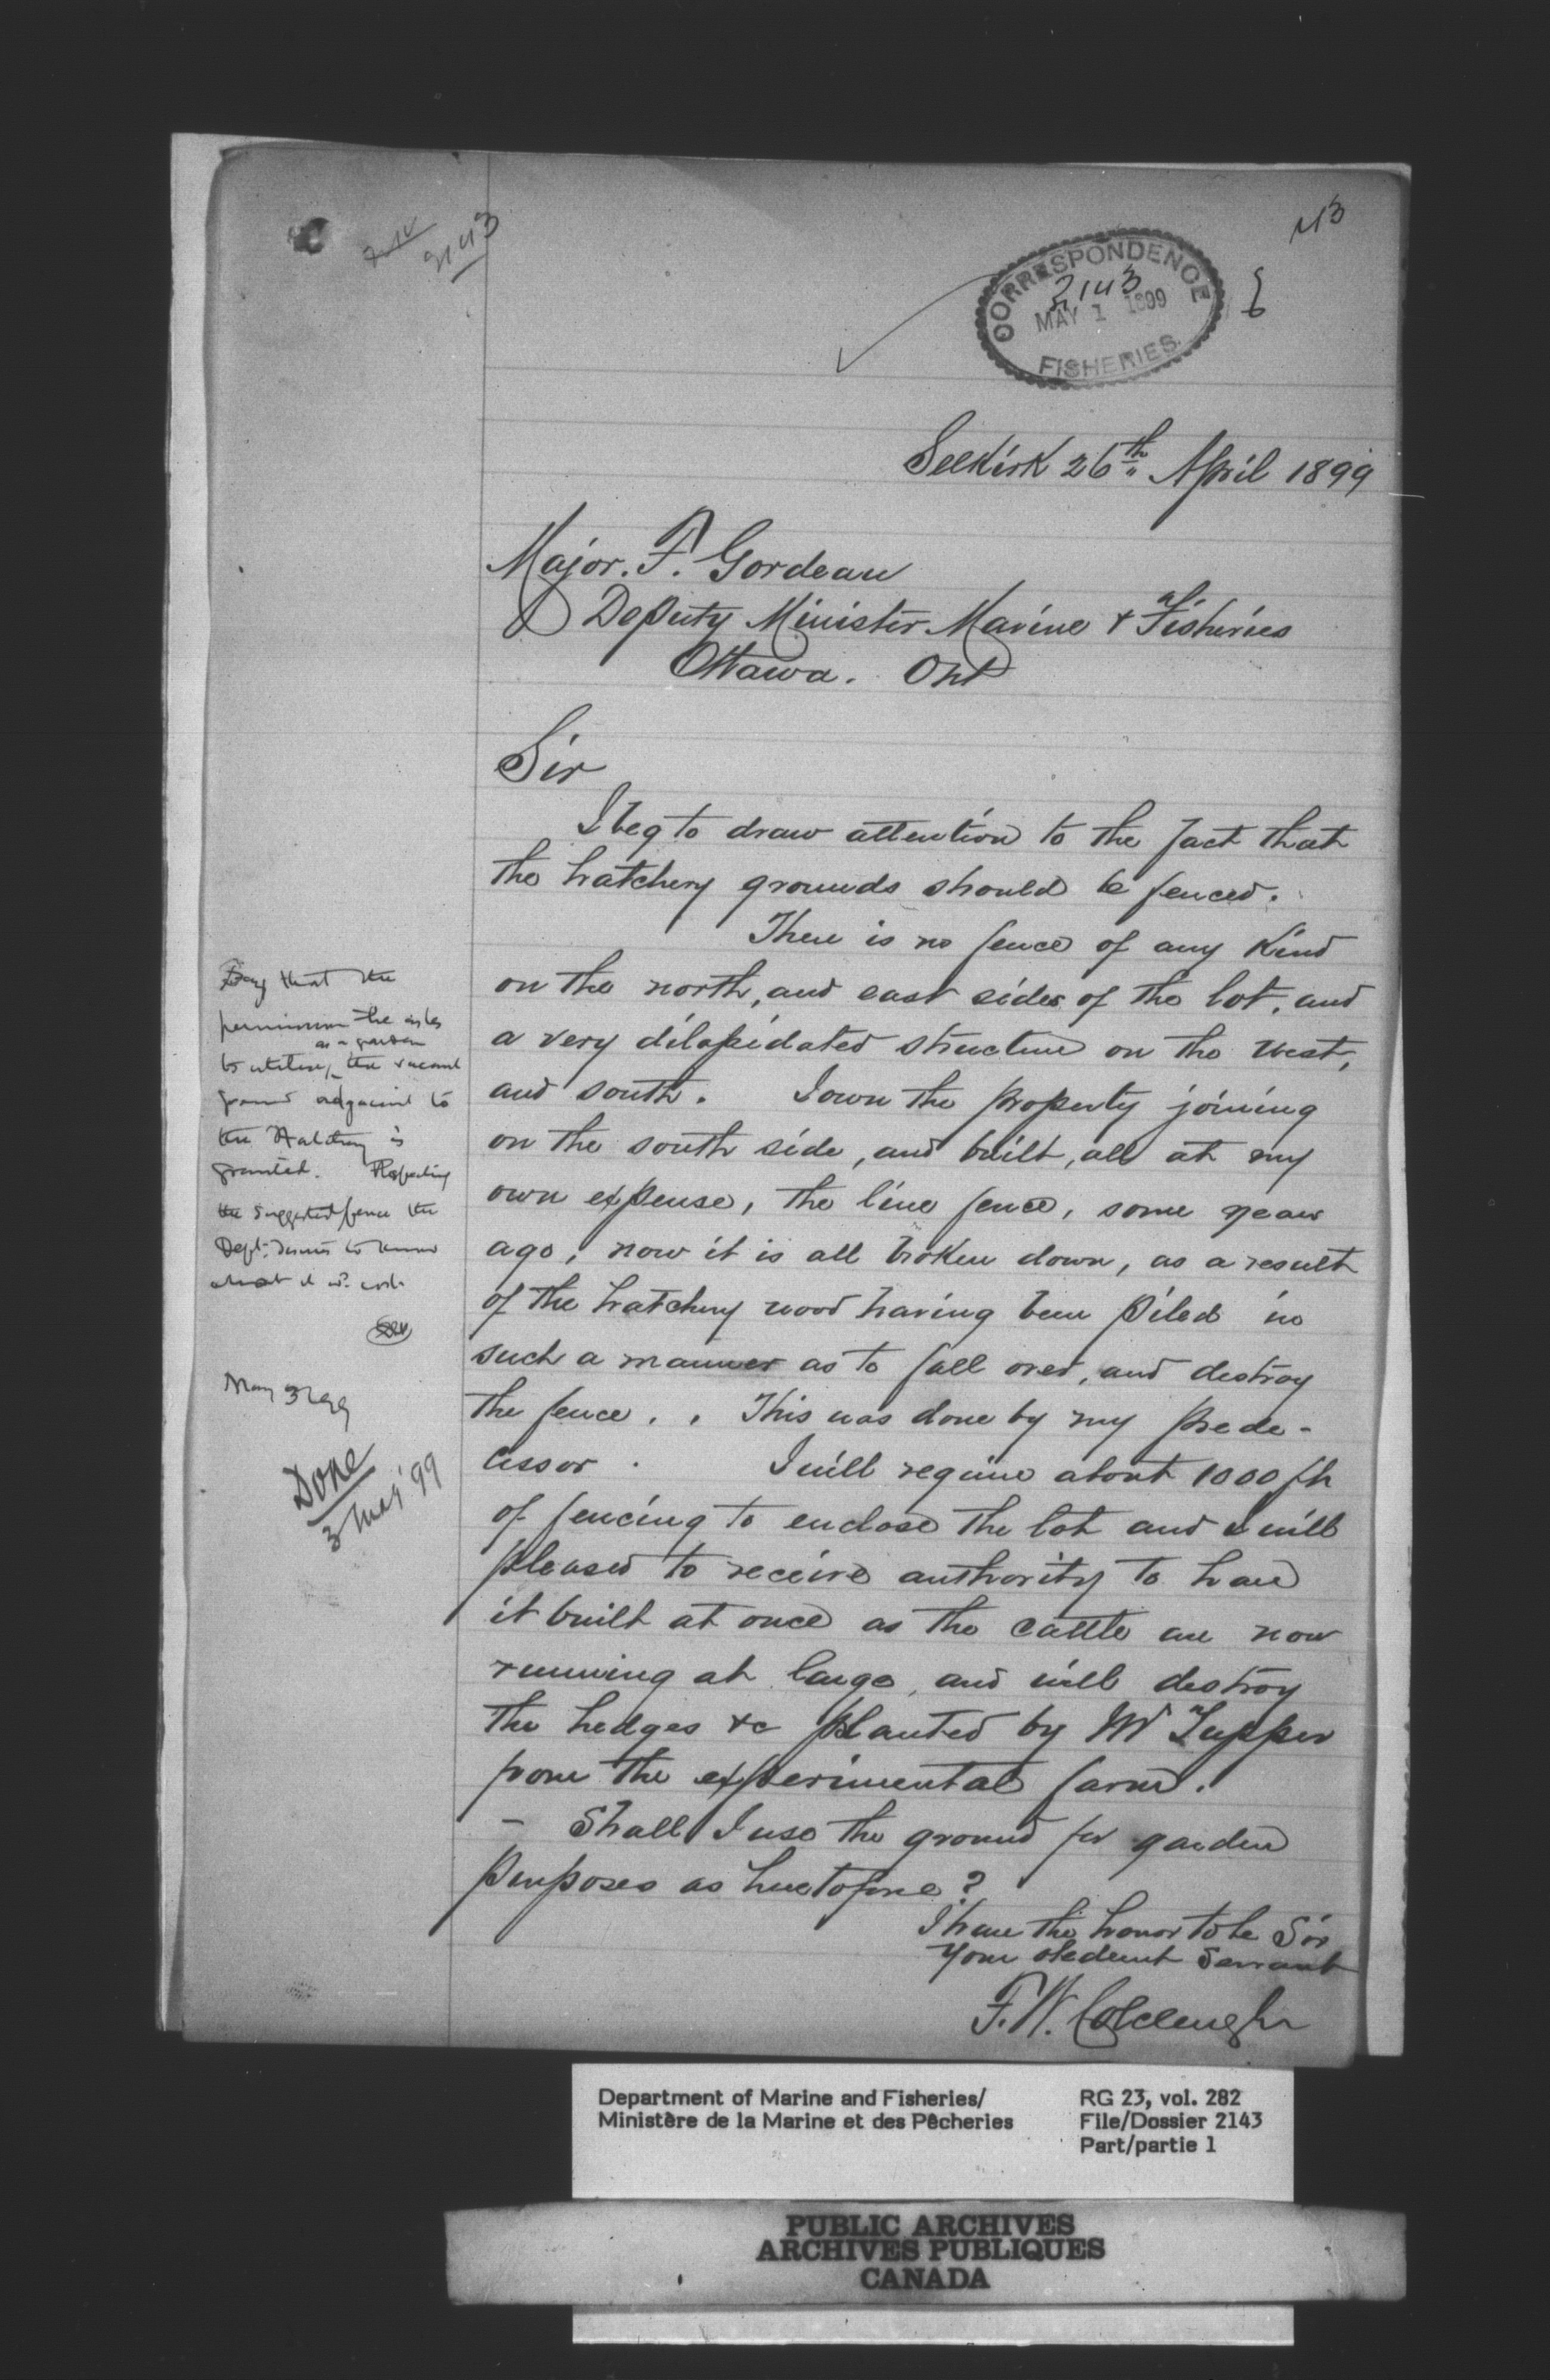 2143
43
CORRESPONDENCE
2143
MAY 1 1899
FISHERIES.
Selkirk 26th April 1899
Major. F. Gordeau
Deputy Minister Marine & Fisheries
Ottawa. Ont
Sir
I beg to draw attention to the fact that
the hatchery grounds should be fenced.
There is no fence of any kind
on the north, and east sides of the lot, and
a very dilapidated structure on the west,
and south. I own the property joining
on the south side, and built, all at my
own expense, the line fence, some years
ago, now it is all broken down, as a result
of the hatchery wood having been piled in
such a manner as to fall over, and destroy
the fence. . This was done by my prede-
cessor. I will require about 1000 ft
of fencing to enclose the lot and I will
pleased to receive authority to have
it built at once as the cattle are now
running at large, and will destroy
the hedges &c planted by Mr Tupper
from the experimental farm.
- Shall I use the ground for garden
purposes as heretofore?
I have the honor to be Sir
Your obedient Servant
F. W. Colcleugh
Say that the
permission he asks
as a garden
to utilise, the vacant
ground adjacent to
the Hatchery is
granted. Respecting
the suggested fence the
Dept. desires to know
what it wd. cost
May 3/99
Done
3 May '99
Department of Marine and Fisheries/
Ministère de la Marine et des Pêcheries
RG 23, vol. 282
File/Dossier 2143
Part/partie 1
PUBLIC ARCHIVES
ARCHIVES PUBLIQUES
CANADA